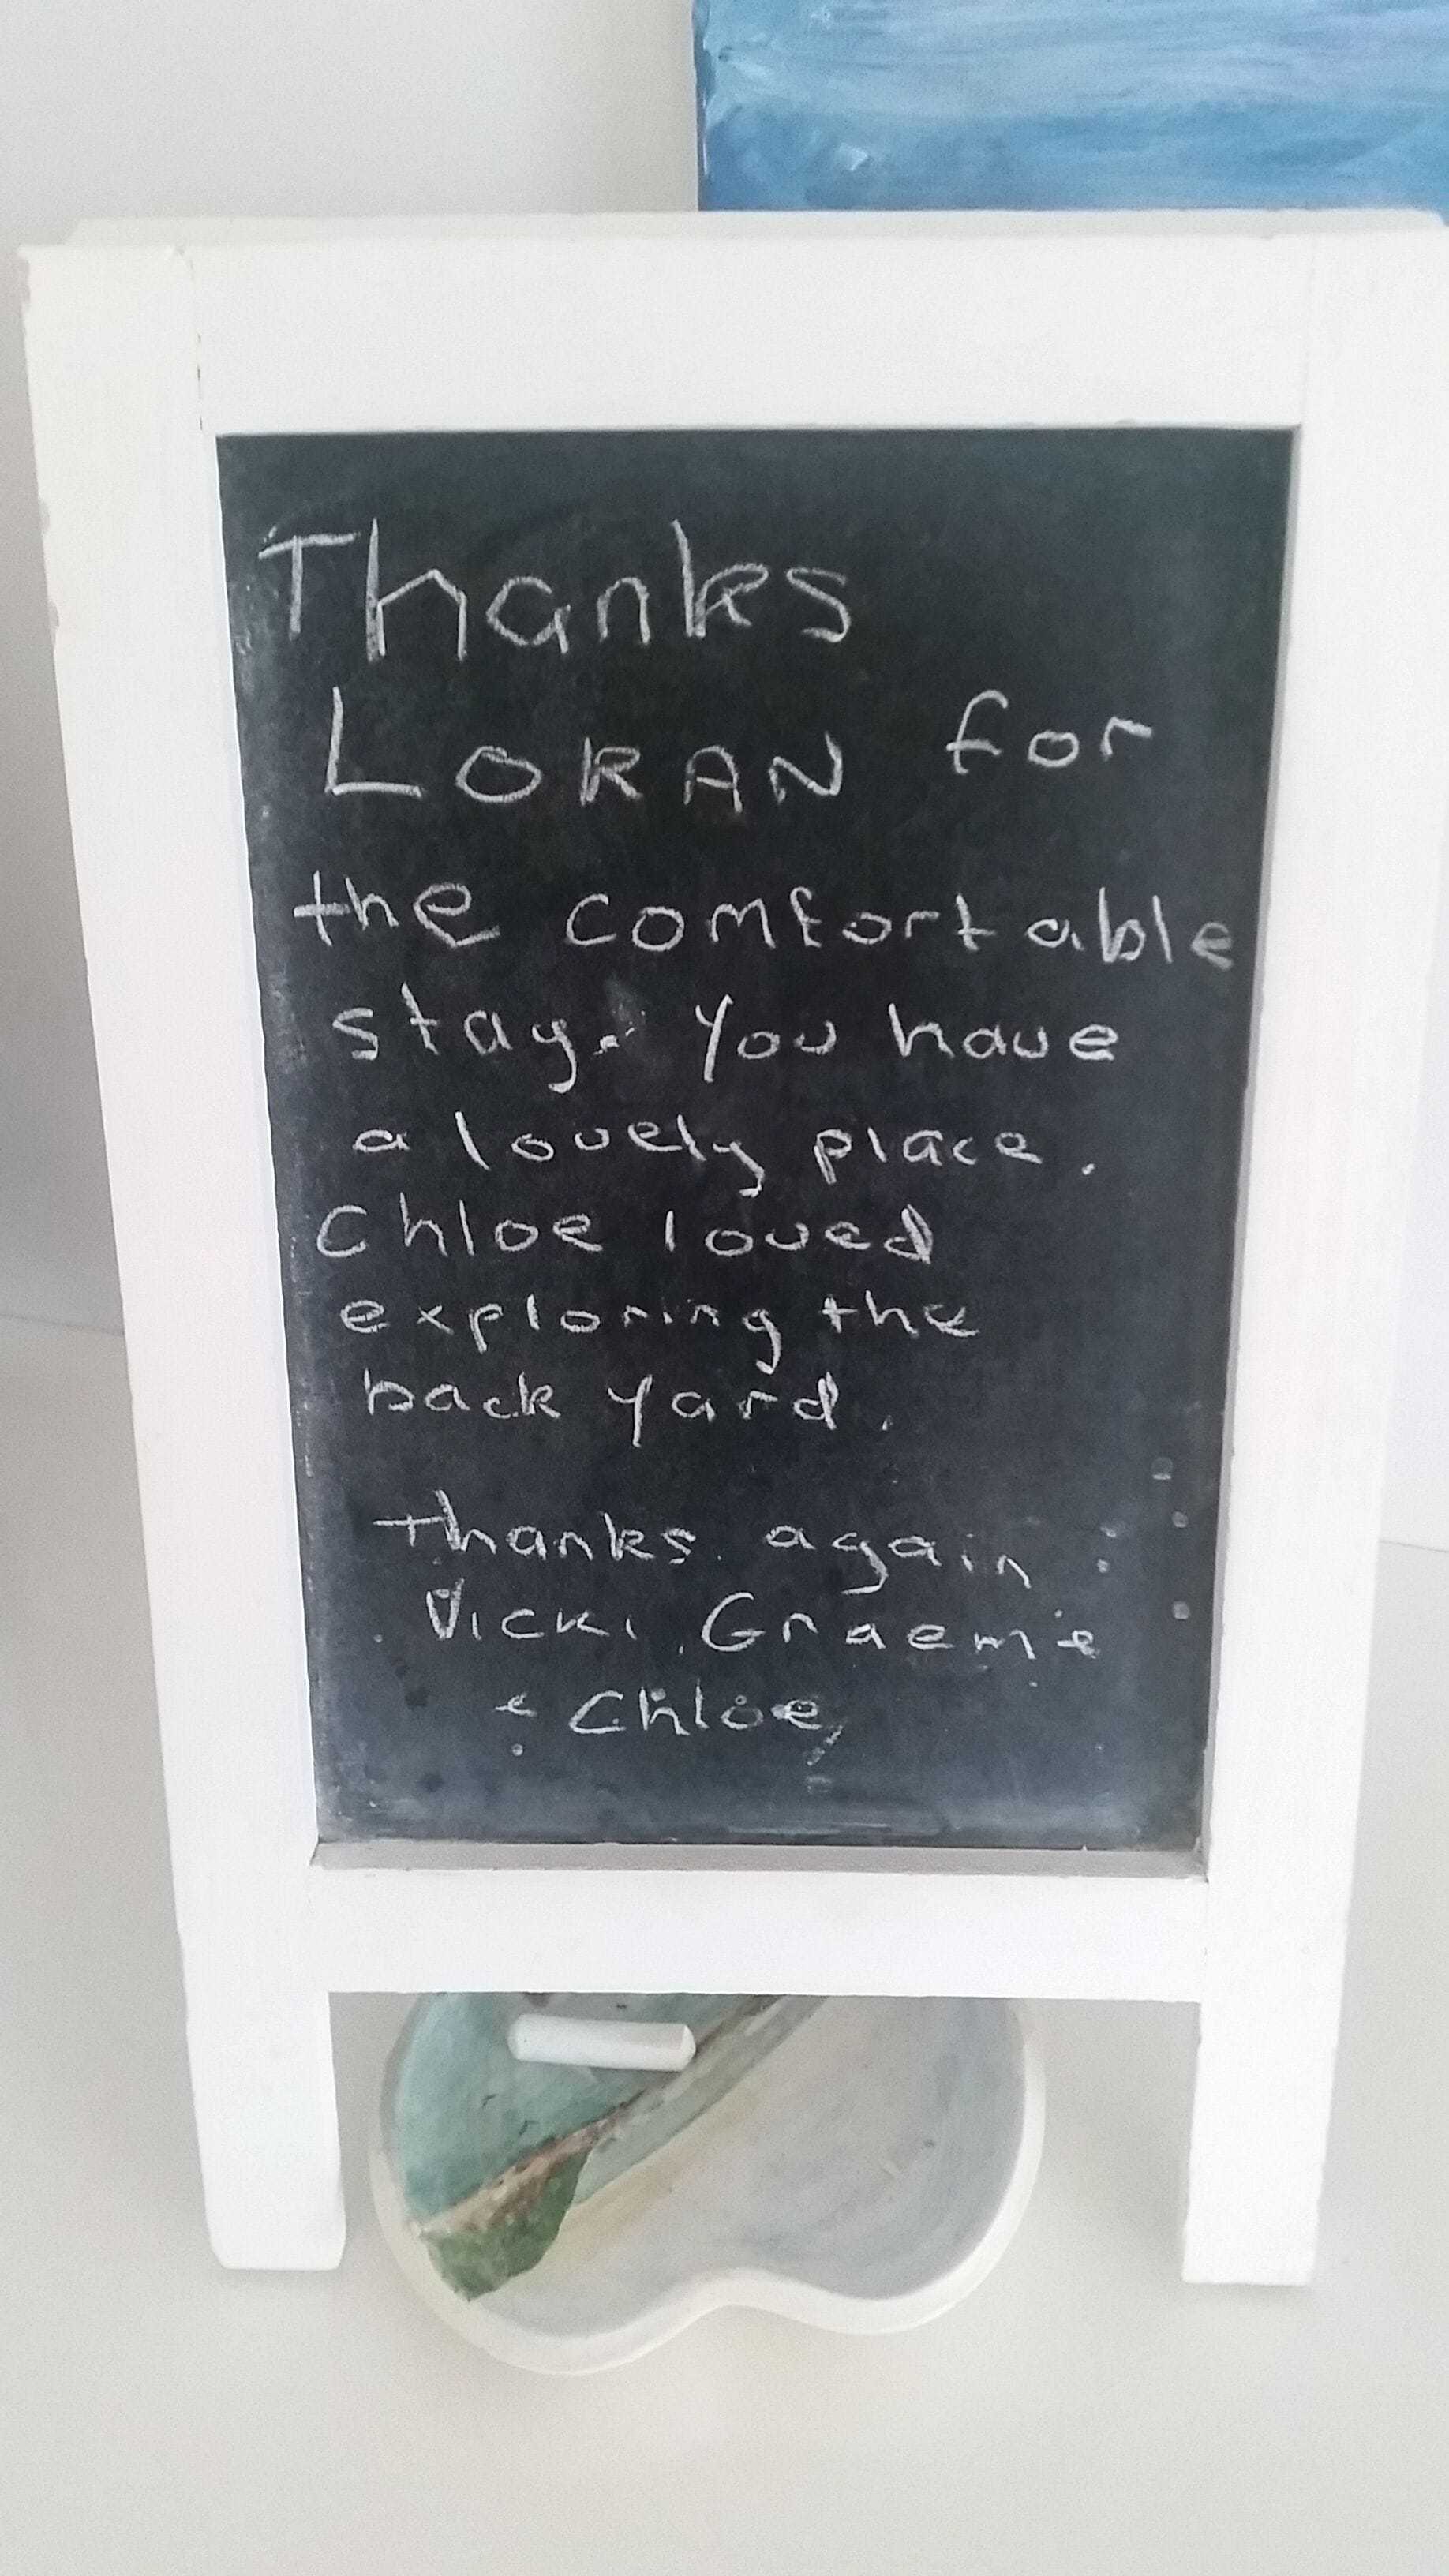 Thanks
LORAN for
the comfortable
stay. You have
a lovely place.
Chloe loved
exploring the
back yard.
Thanks again
Vicki, Graeme
& Chloe